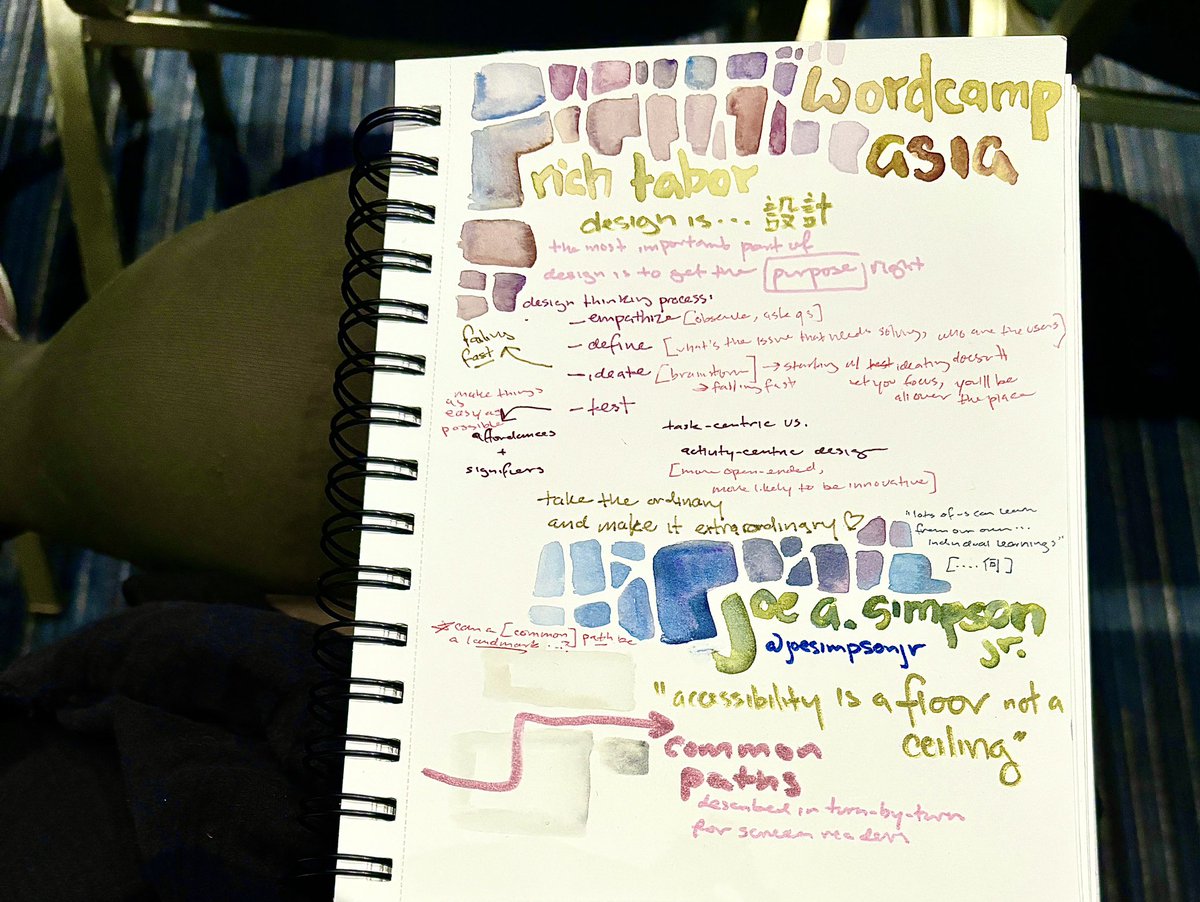 wordcamp
asia
rich tabor
design is... 設計
the most important part of
design is to get the purpose right
design thinking process:
- empathize [observe, ask qs]
- define [what's the issue that needs solving, who are the users]
- ideate [brainstorm] → starting w/ test ideating doesn't
let you focus, you'll be
all over the place
→ failing fast
failing
fast
- test
make things
as
easy as
possible
affordances
+
signifiers
task-centric vs.
activity-centric design
[more open-ended,
more likely to be innovative]
take the ordinary
and make it extraordinary ♡
"lots of us can learn
from our own...
individual learnings"
[.... 何]
joe a. simpson
jr.
@joesimpsonjr
* can a [common] path be
a landmark...?
"accessibility is a floor not a
ceiling"
common
paths
described in turn-by-turn
for screen readers